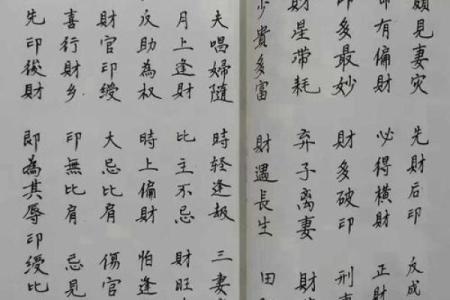 頗見妻灾 先財后印 反成
命有偏財 必得横財 正財
印多最妙 財多破印 刑
財星帶耗 弃子离妻 財
少貴多富 財遇長生 田
夫唱婦隨 時轻逢劫 三妻
月上逢財 比主不忌 財旺
反助為权 時上偏財 怕逢
財官印綬 大忌比肩 傷官
喜行財乡 印無比肩 忌見
先印後財 即為其辱 印綬比